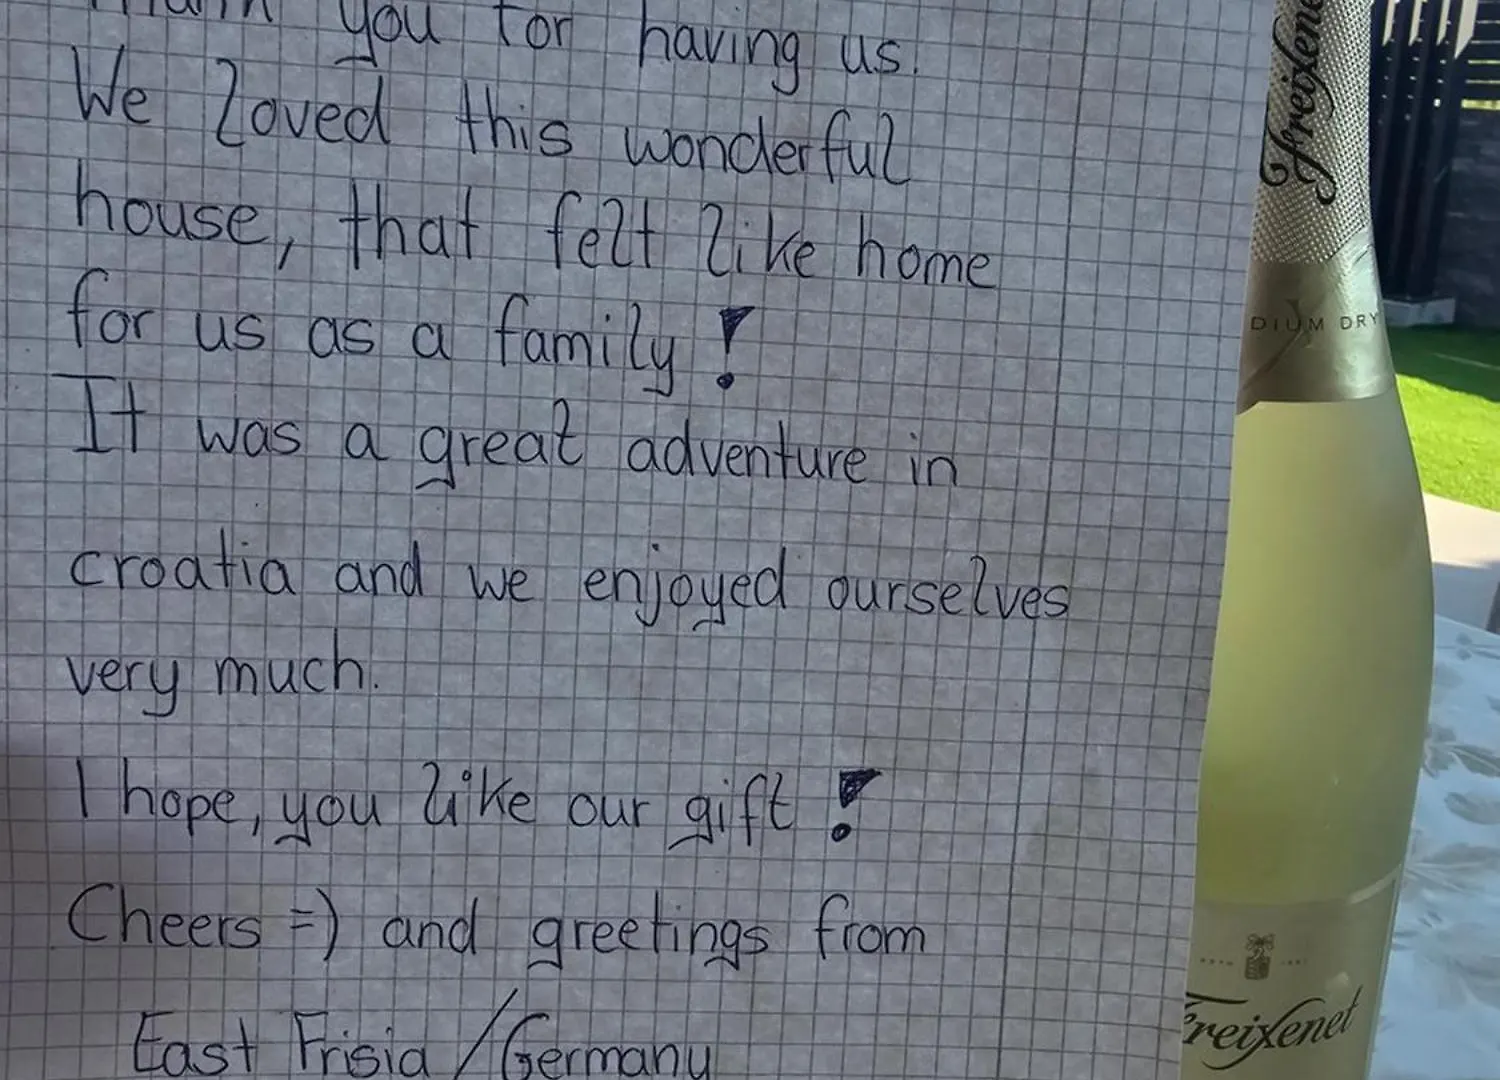 Thank you for having us.
We loved this wonderful
house, that felt like home
for us as a family!
It was a great adventure in
croatia and we enjoyed ourselves
very much.
I hope, you like our gift!
Cheers =) and greetings from
East Frisia / Germany
Freixenet
DIUM DRY
Freixenet